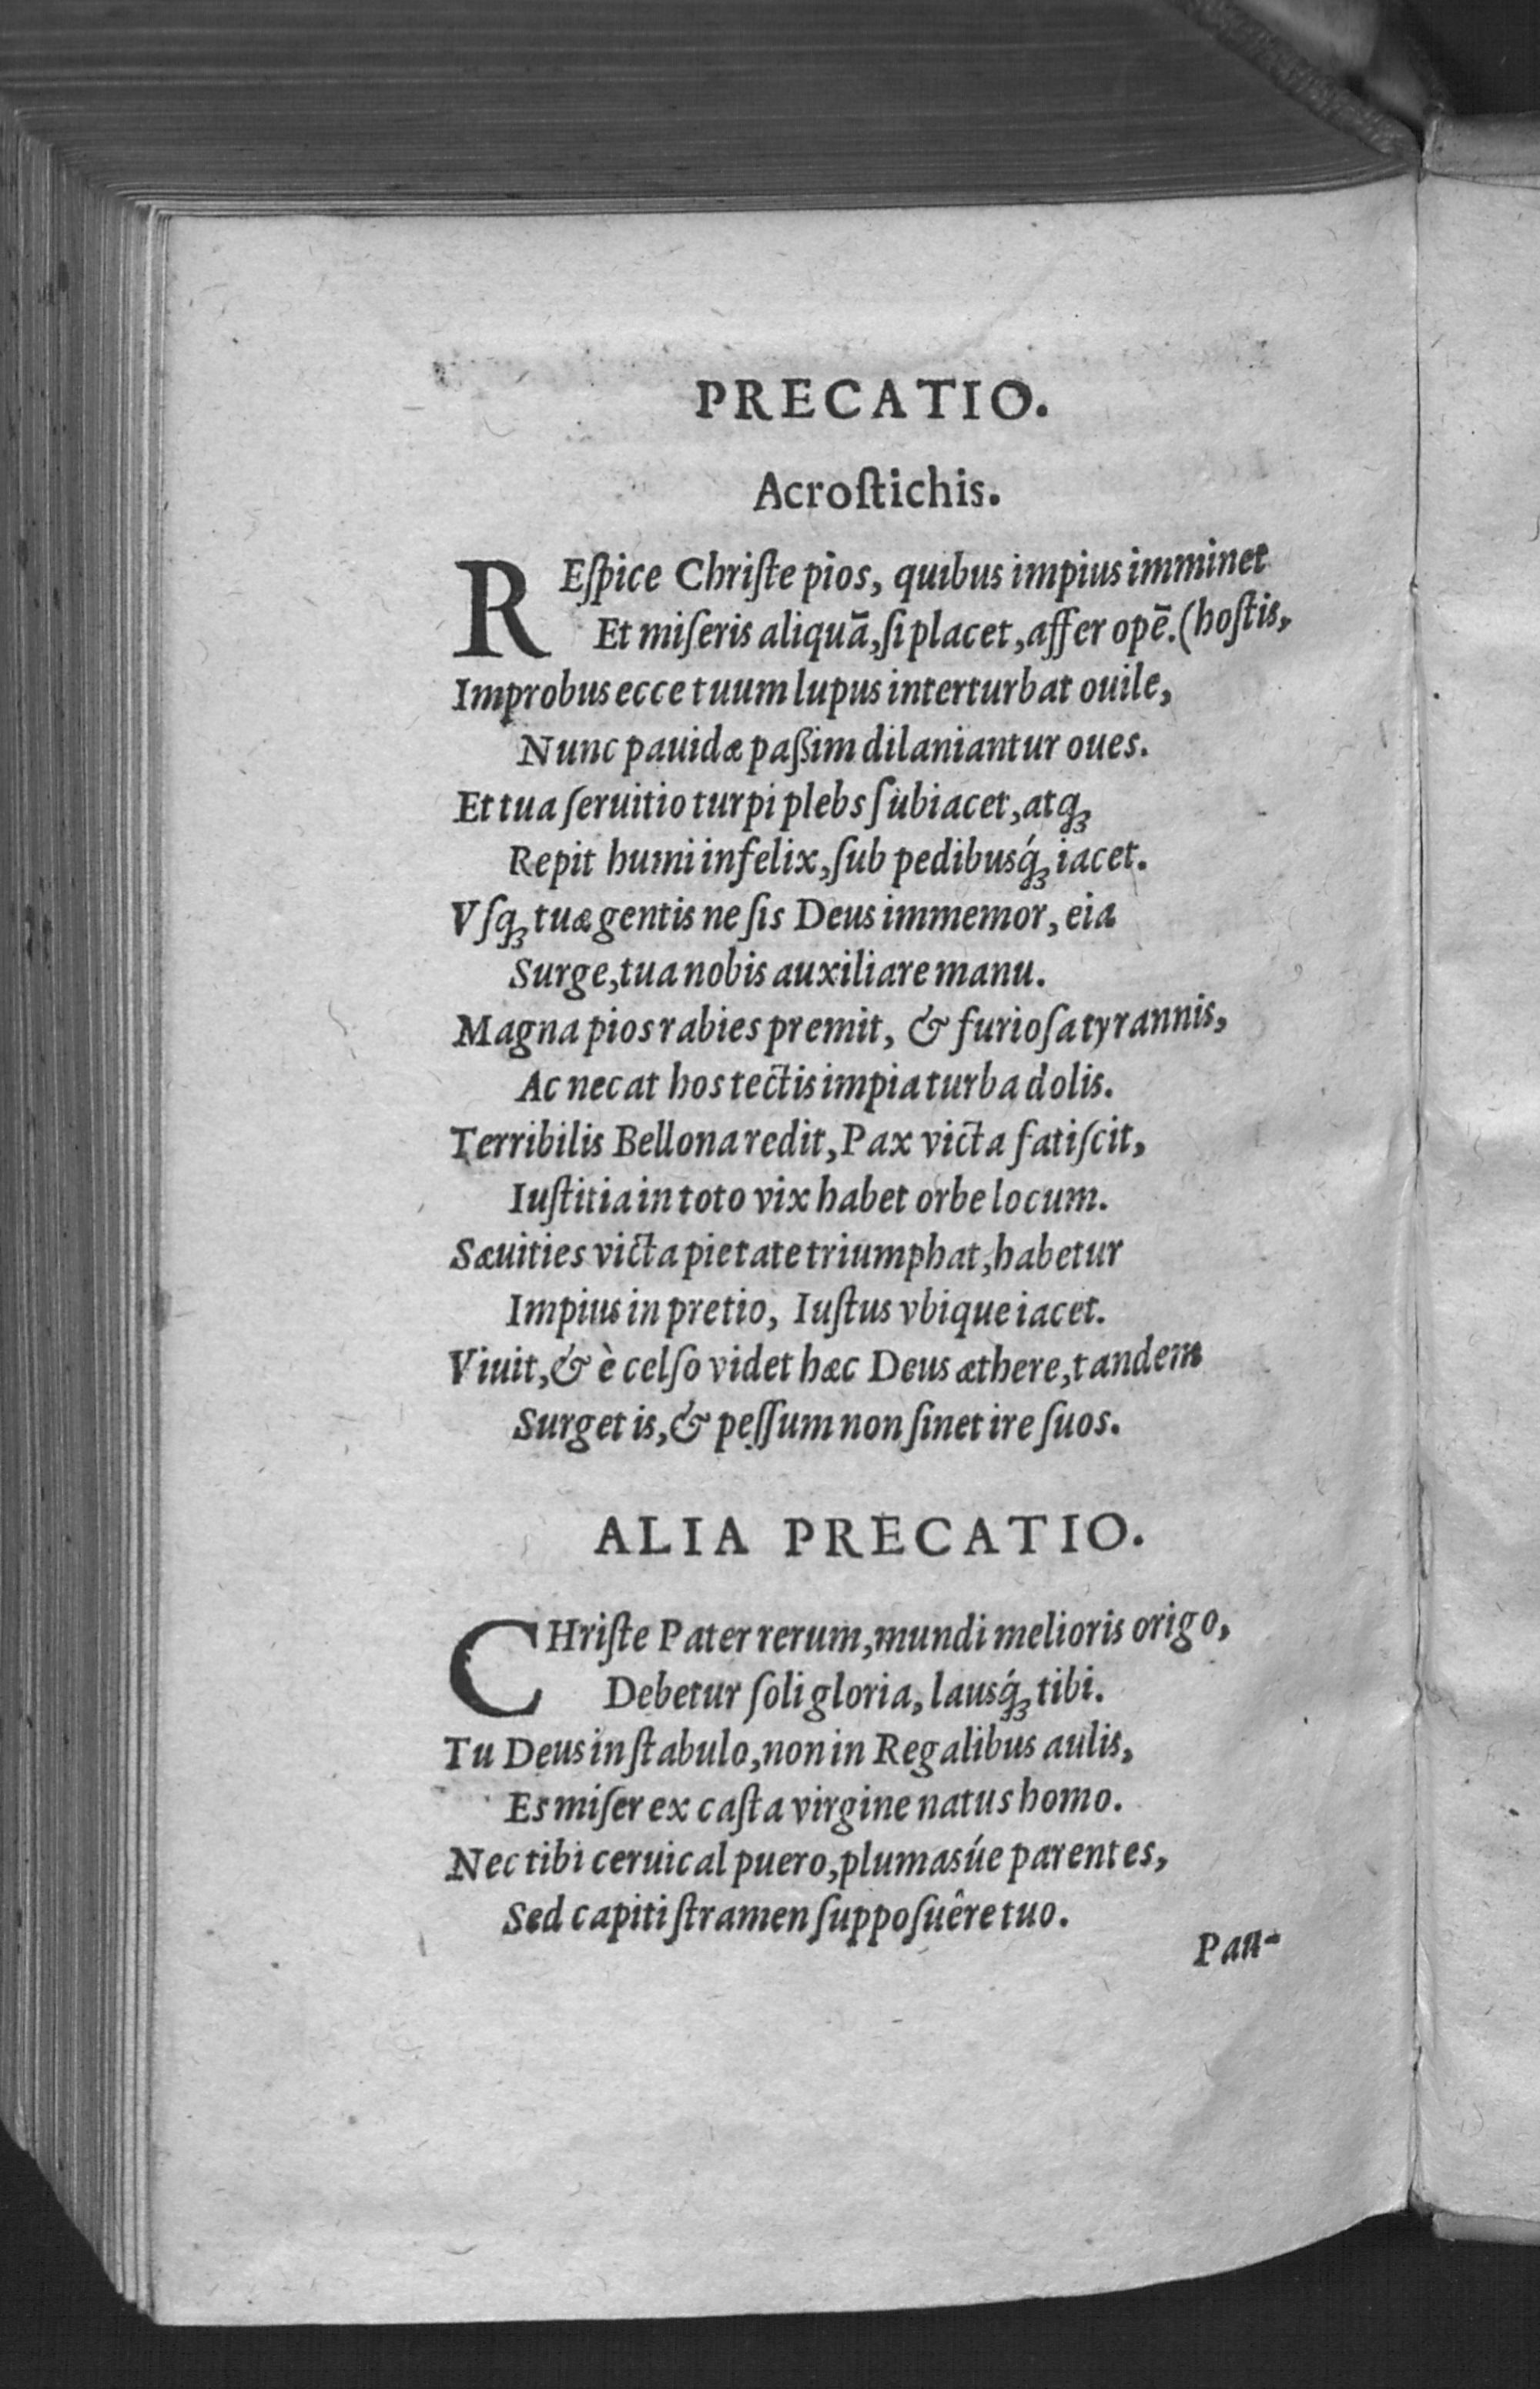 PRECATIO.
Acroſtichis.
REſpice Chriſte pios, quibus impius imminet
Et miſeris aliquā, ſi placet, affer opē. (hoſtis,
Improbus ecce tuum lupus interturbat ouile,
Nunc pauidæ paßim dilaniantur oues.
Et tua ſeruitio turpi plebs ſubiacet, atqꝫ
Repit humi infelix, ſub pedibusq́ꝫ iacet.
Vſqꝫ tuæ gentis ne ſis Deus immemor, eia
Surge, tua nobis auxiliare manu.
Magna pios rabies premit, & furioſa tyrannis,
Ac necat hos tectis impia turba dolis.
Terribilis Bellona redit, Pax victa fatiſcit,
Iuſtitia in toto vix habet orbe locum.
Sæuities victa pietate triumphat, habetur
Impius in pretio, Iuſtus vbique iacet.
Viuit, & è celſo videt hæc Deus æthere, tandem
Surget is, & peſſum non ſinet ire ſuos.
ALIA PRECATIO.
CHriſte Pater rerum, mundi melioris origo,
Debetur ſoli gloria, lausq́ꝫ tibi.
Tu Deus in ſtabulo, non in Regalibus aulis,
Es miſer ex caſta virgine natus homo.
Nec tibi ceruical puero, plumasúe parentes,
Sed capiti ſtramen ſuppoſuêre tuo.
Pan-